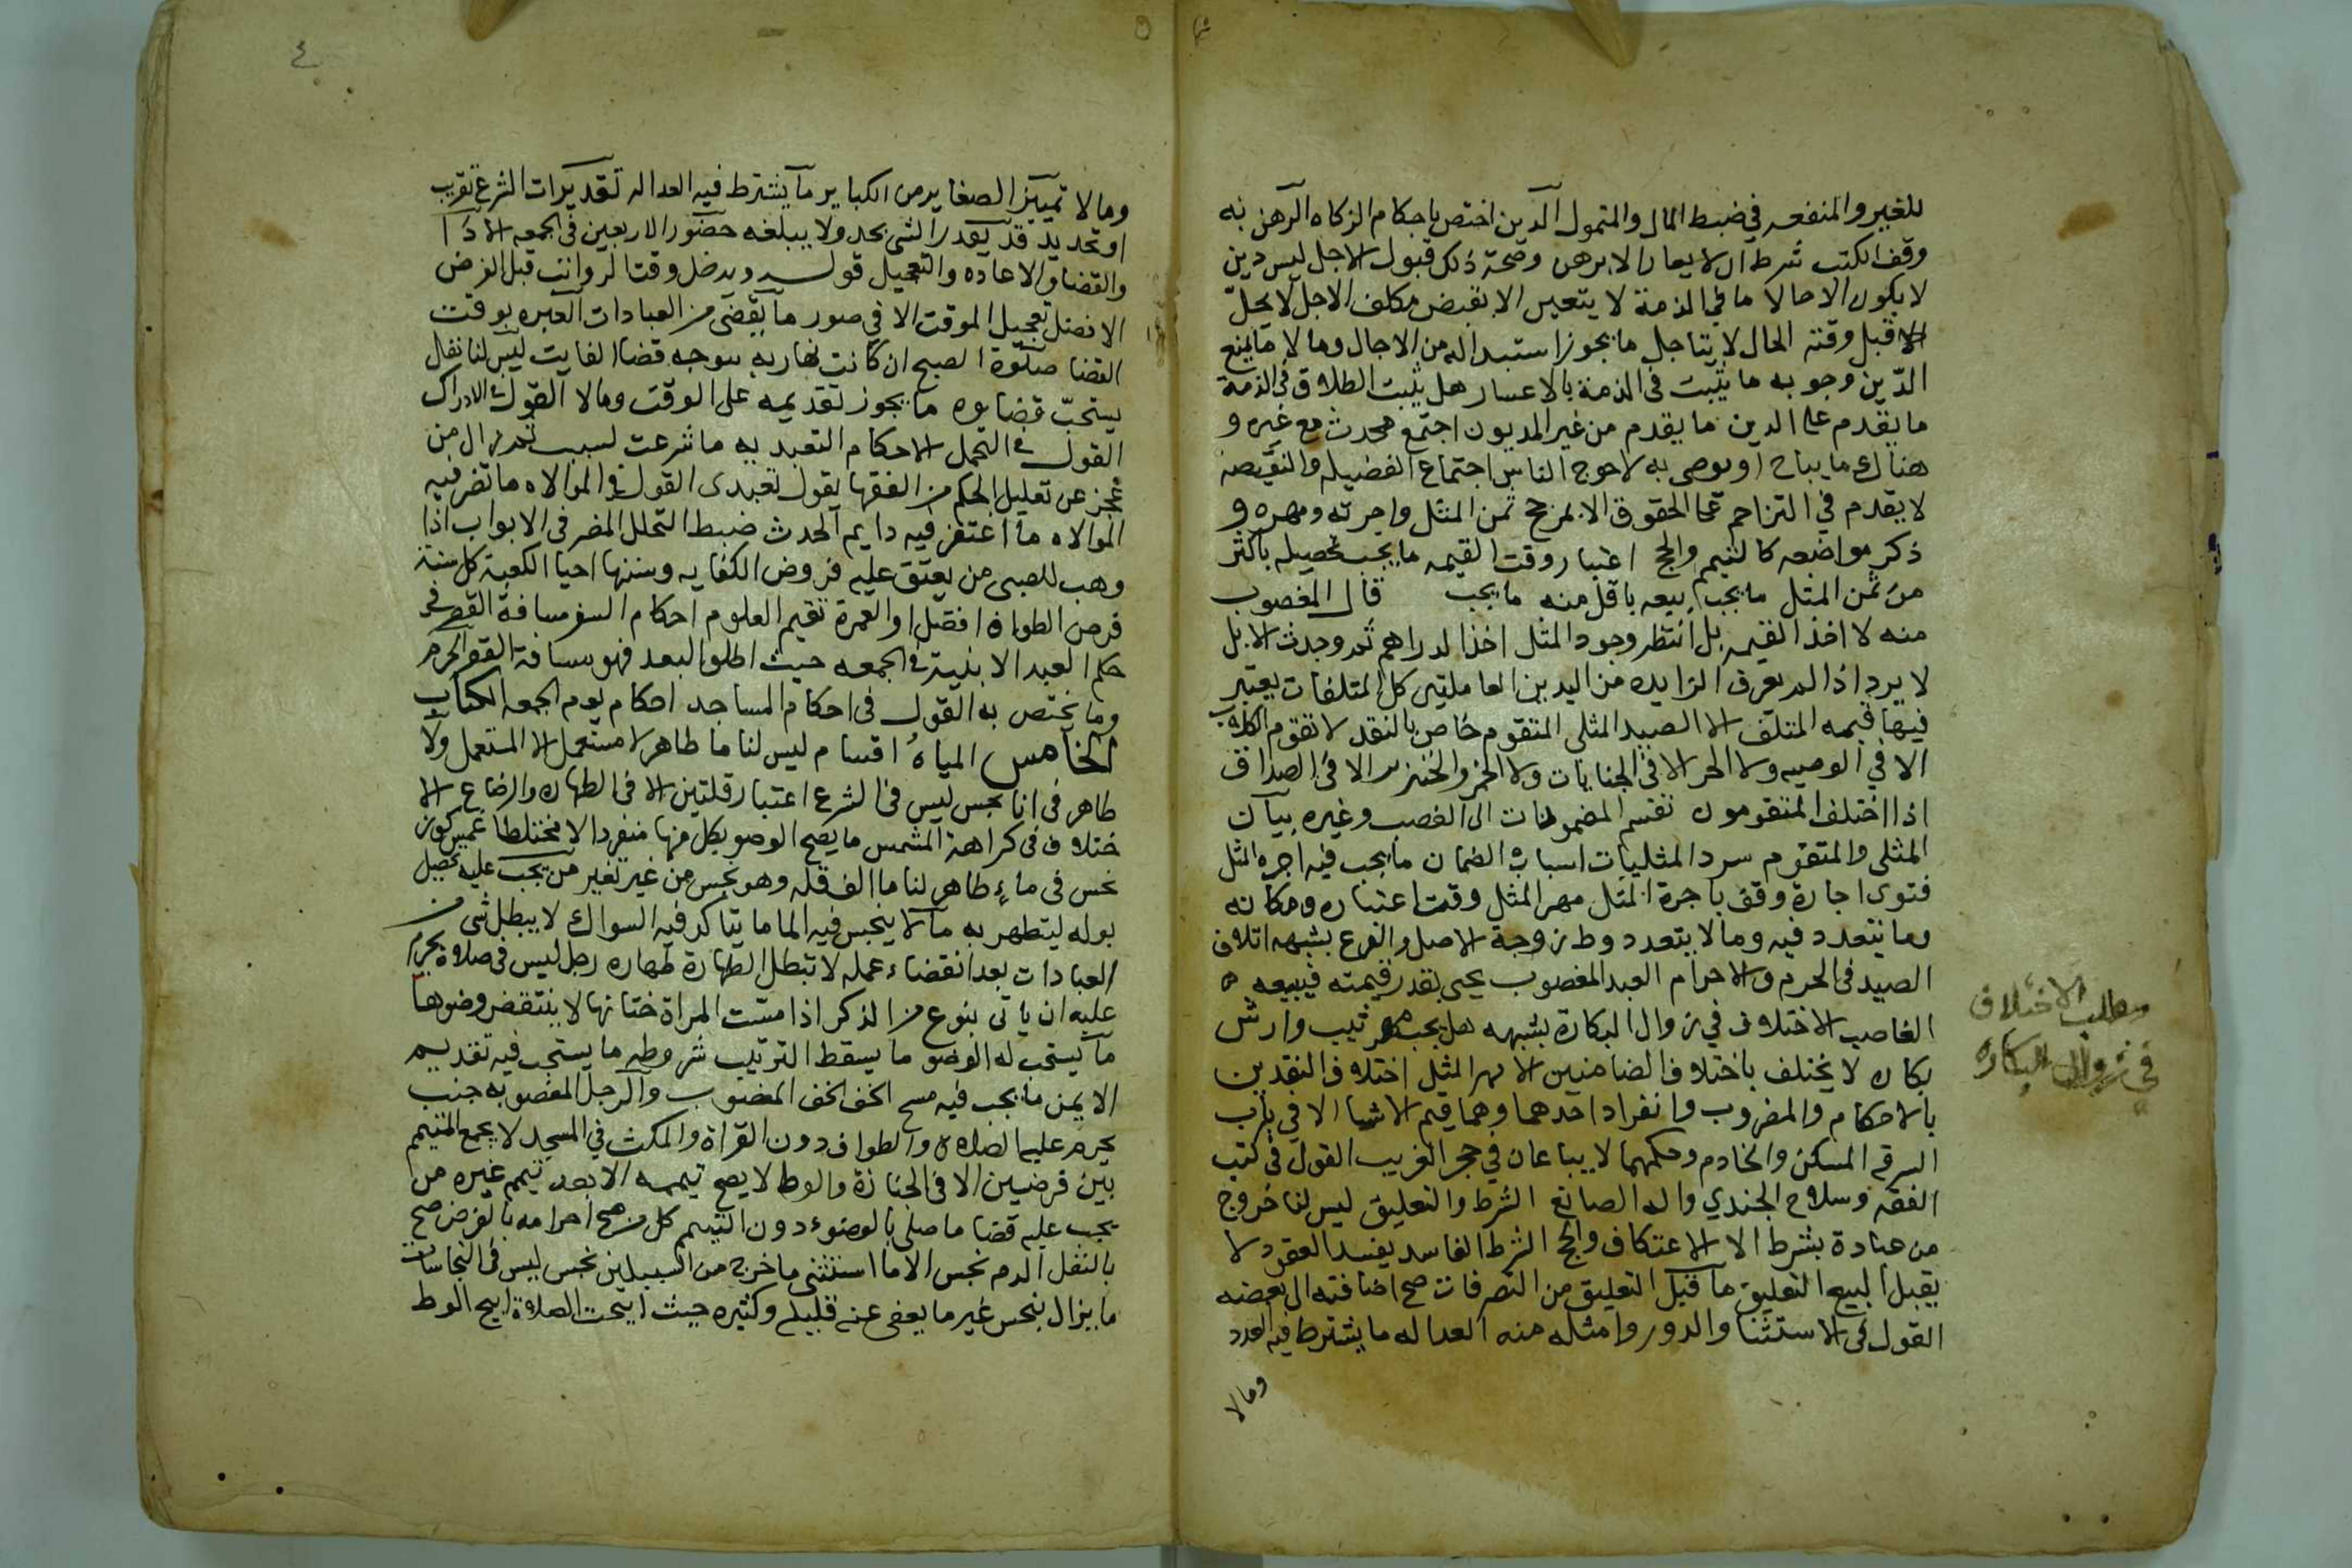 للغير والمنفعه في ضبط المال والمتمول الدين اختص باحكام الزكاه الرهن به
وقف الكتب شرط ان لا يعار الا برهن وصحة ذلك قبول الاجل ليس دين
لا يكون الا حالا ما في الذمة لا يتعين الا بقبض مكلف الاجل لا يحل
الا قبل وقته الحال لا يتاجل ما يجوز استبداله من الاجال وما لا ما يمنع
الدين وجوبه ما يثبت في الذمة بالاعسار هل يثبت الطلاق في الذمة
ما يقدم على الدين ما يقدم من غير المديون اجتمع محدث مع غيره و
هناك ما يباح او يوصى به لاحوج الناس اجتماع الفضيله والنقيصه
لا يقدم في التزاحم على الحقوق الا بمرجح ثمن المثل واجرته ومهره و
ذكر مواضعه كالتيمم والحج اعتبار وقت القيمه ما يجب تحصيله باكثر
من ثمن المثل ما يجب بيعه باقل منه ما يجب قال المغصوب
منه لا اخذ القيمه بل انتظر وجود المثل اخذ الدراهم ثم وجدت الابل
لا يرد اذا لم يعرف الزايده من اليدين العاملتين كل المتلفات يعتبر
فيها قيمه المتلف الا الصيد المثلي المتقوم خاص بالنقد لا تقوم الكلاب
الا في الوصيه ولا الحر الا في الجنايات ولا الخمر والخنزير الا في الصداق
اذا اختلف المتقومون تقسم المضمونات الى الغصب وغيره بيان
المثلي والمتقوم سرد المثليات اسباب الضمان ما يجب فيه اجره المثل
فتوى اجارة وقف باجرة المثل مهر المثل وقت اعتباره ومكانه
وما يتعدد فيه وما لا يتعدد وطء زوجة الاصل والفرع بشبهه اتلاف
الصيد في الحرم والاحرام العبد المغصوب يجنى بقدر قيمته فيبيعه
الغاصب الاختلاف في زوال البكارة بشبهه هل يجب مهر ثيب وارش
بكاره لا يختلف باختلاف الضامنين الا مهر المثل اختلاف النقدين
بالاحكام والمضروب وانفراد احدهما وهما قيم الاشيا الا في باب
السرقه المسكن والخادم وحكمهما لا يباعان في حجر الغريب القول في كتب
الفقه وسلاح الجندي واله الصانع الشرط والتعليق ليس لنا خروج
من عبادة بشرط الا الاعتكاف والحج الشرط الفاسد يفسد العقود لا
يقبل البيع التعليق ما قبل التعليق من التصرفات صح اضافته الى بعضه
القول في الاستثنا والدور وامثله منه العداله ما يشترط فيه العدد
وما لا
مطلب الاختلاف
في زوال البكاره
٤
وما لا تمييز الصغاير من الكباير ما يشترط فيه العداله تقديرات الشرع تقريب
او تحديد قد يقدر الشي بحد ولا يبلغه حضور الاربعين في الجمعه الادا
والقضا والاعاده والتعجيل قول يدخل وقتا لرواتب قبل الفرض
الافضل تعجيل الموقت الا في صور ما يقضى من العبادات العبره بوقت
القضا صلوة الصبح ان كانت نهاريه يتوجه قضا الفايت ليس لنا نفل
يستحب قضاوه ما يجوز تقديمه على الوقت وما لا القول في الادراك
القول في التحمل الاحكام التعبديه ما شرعت لسبب ثم زال من
عجز عن تعليل الحكم من الفقها يقول تعبدي القول في الموالاه ما تضر فيه
الموالاه ما اغتفر فيه دايم الحدث ضبط التخلل المضر في الابواب اذا
وهب للصبي من يعتق عليه فروض الكفايه وسننها احيا الكعبة كل سنة
فرض الطواف افضل او العمرة تقسيم العلوم احكام السفر مسافة القصر في
حكم البعد الا بنية في الجمعه حيث اطلق البعد فهو مسافة القصر الحرم
وما يختص به القول في احكام المساجد احكام يوم الجمعه الكتاب
الخامس المياه اقسام ليس لنا ما طاهر لا مستعمل الا المستعمل ولا
طاهر في انا نجس ليس في الشرع اعتبار قلتين الا في الطهاره والرضاع الا
ختلاف في كراهة المشمس ما يصح الوضو بكل منها منفردا لا مختلطا غمس كوز
نجس في ماء طاهر لنا ما الف قله وهو نجس من غير تغير من يجب عليه تحصيل
بوله ليتطهر به ما لا ينجس فيه الما ما يتاكد فيه السواك لا يبطل شي من
العبادات بعد انقضاء عمله لا تبطل الطهارة طهاره رجل ليس في صلاة يحرم
عليه ان ياتى بنوع من الذكر اذا مست المراة ختانها لا ينتقض وضوها
ما يستحب له الوضو ما يسقط الترتيب شروطه ما يستحب فيه تقديم
الايمن ما يجب فيه مسح الخف الخف المغصوب والرجل المغصوبه جنب
يحرم عليه الصلاه والطواف دون القراة والمكث في المسجد لا يجمع المتيمم
بين فرضين الا في الجنازة والوطء لا يصح تيممه الا بعد تيمم غيره من
يجب عليه قضا ما صلى بالوضوء دون التيمم كل من صح احرامه بالفرض صح
بالنفل الدم نجس الا ما استثنى ما خرج من السبيلين نجس ليس في النجاسات
ما يزال بنجس غير ما يعفى عنه قليله وكثيره حيث ابيحت الصلاة ابيح الوطء